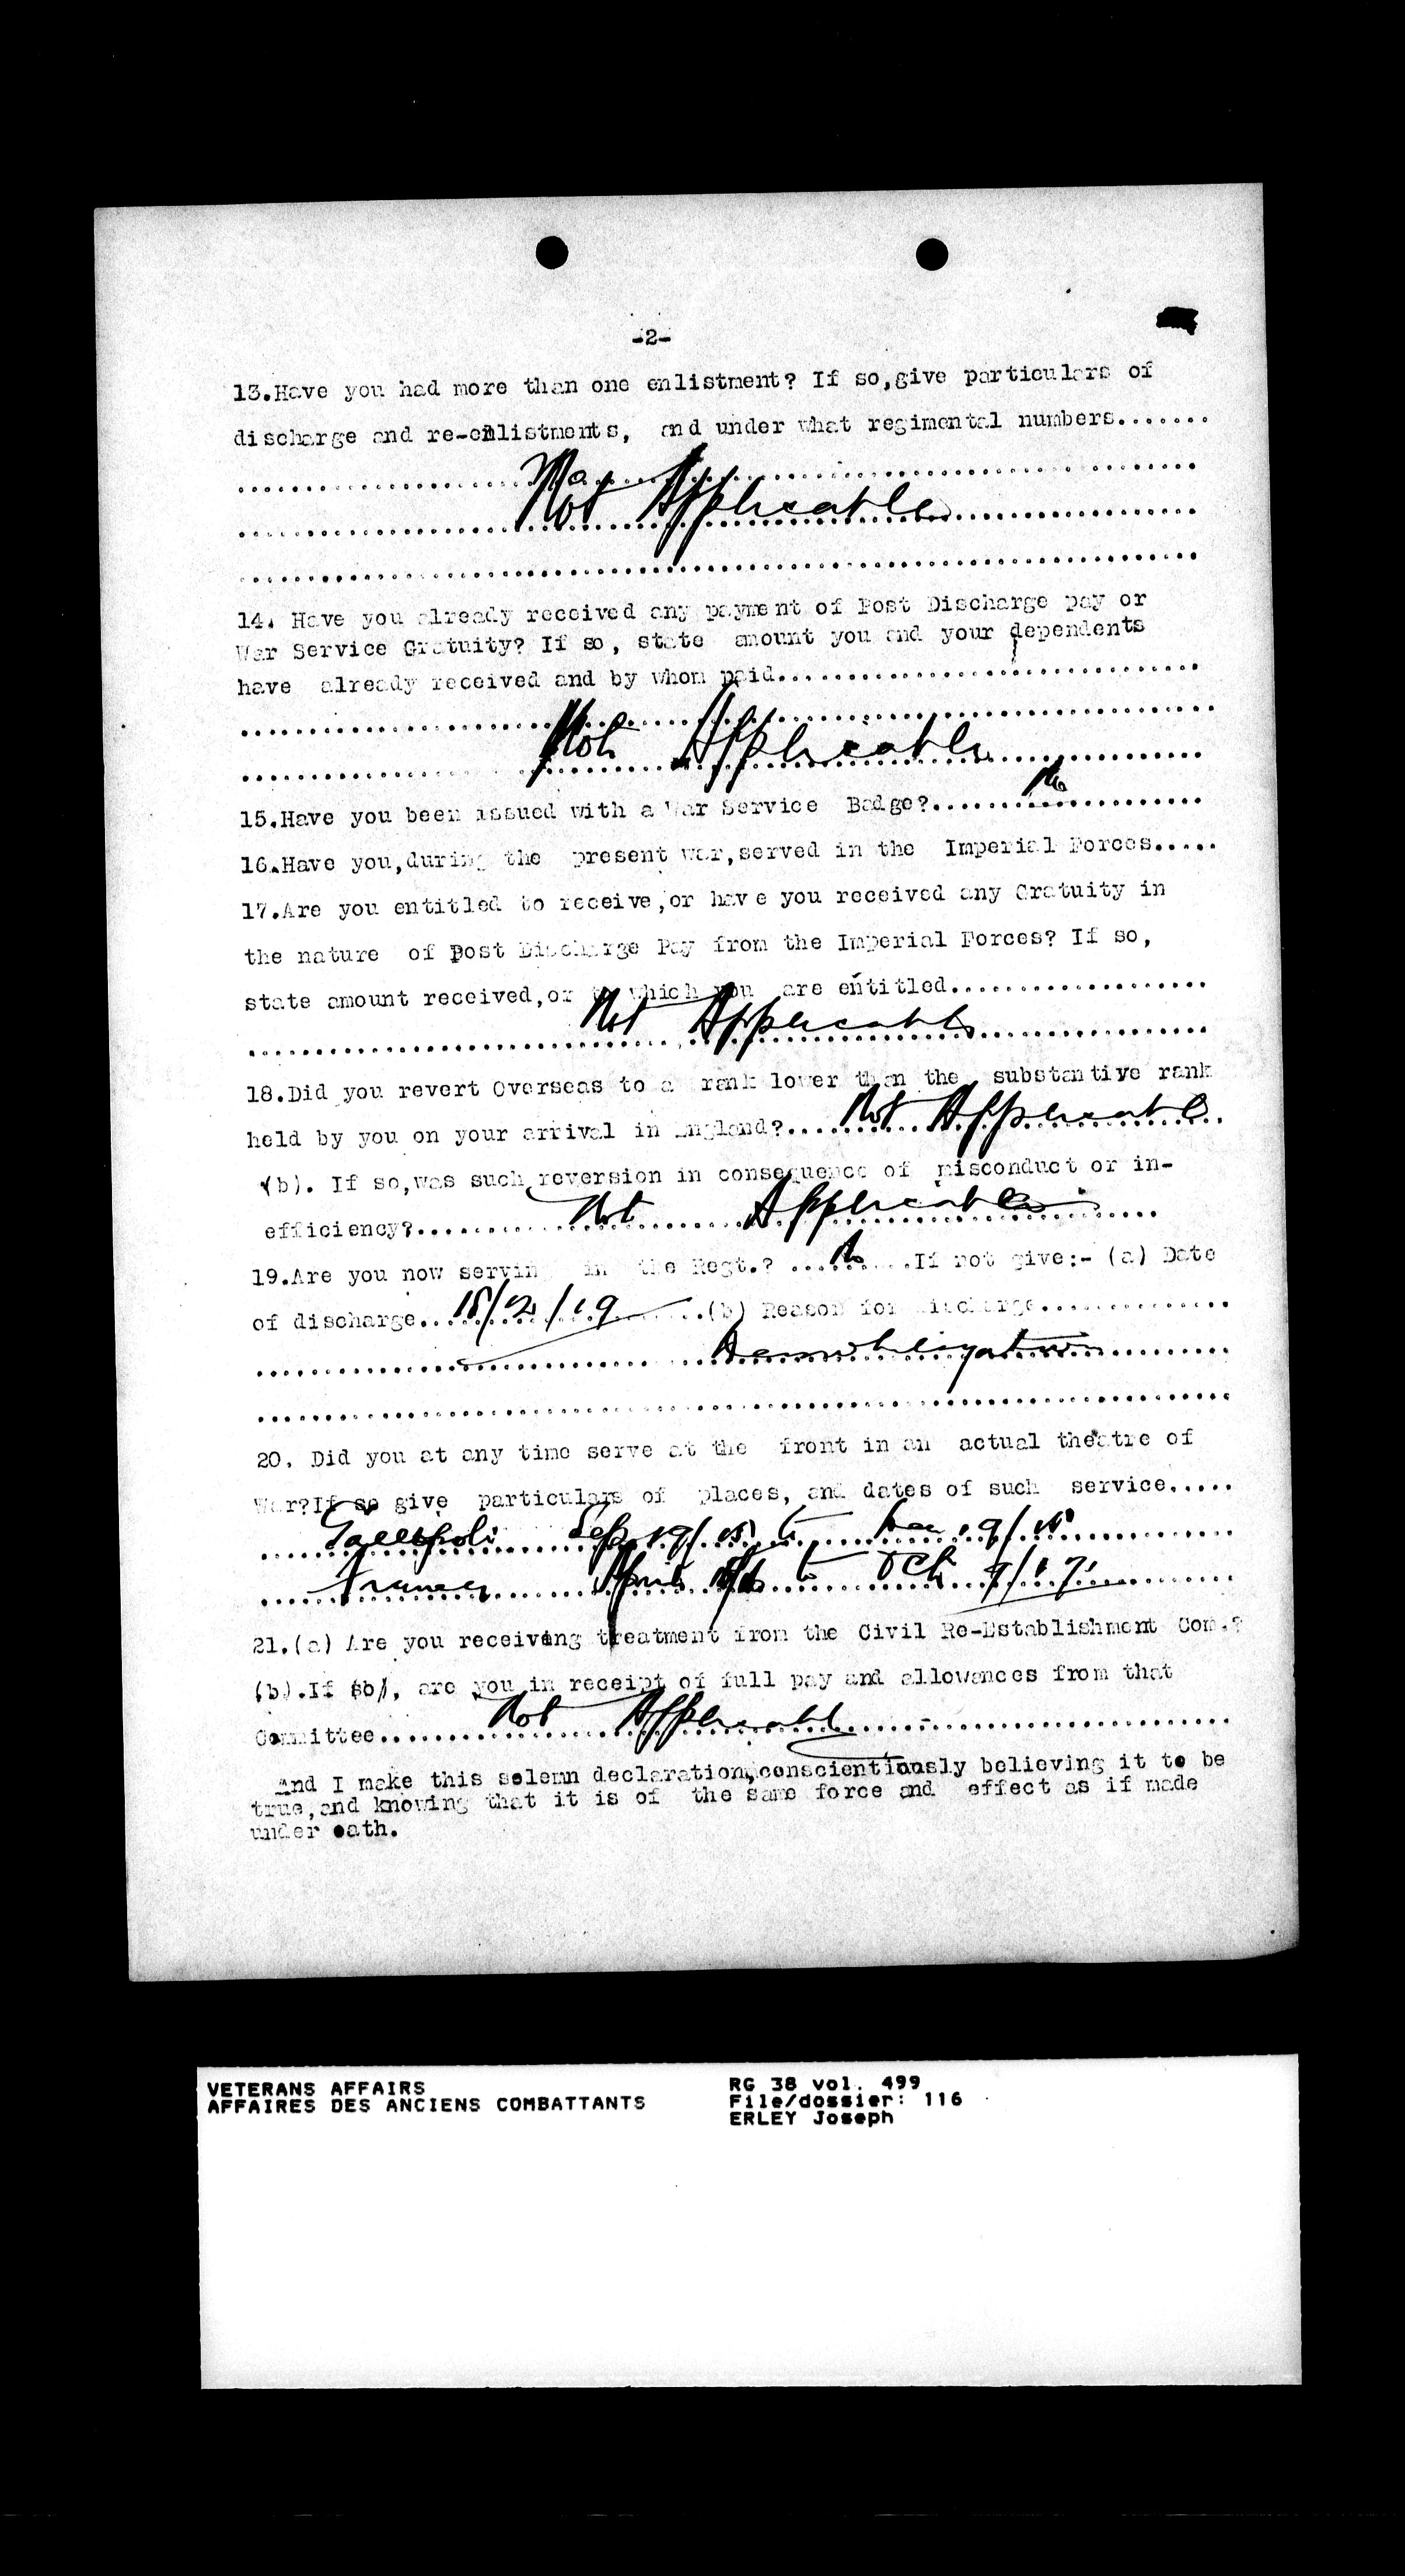 -2-
13.Have you had more than one enlistment? If so,give particulars of
discharge and re-enlistments, and under what regimental numbers.......
No
Not Applicable
14. Have you already received any payment of Post Discharge pay or
War Service Gratuity? If so, state amount you and your dependents
have already received and by whom paid...............................
Not Applicable
15.Have you been issued with a War Service Badge?.......No............
16.Have you,during the present war,served in the Imperial Forces.....
17.Are you entitled to receive,or have you received any Gratuity in
the nature of Post Discharge Pay from the Imperial Forces? If so,
state amount received,or to which you are entitled...................
Not Applicable
18.Did you revert Overseas to a rank lower than the substantive rank
held by you on your arrival in England?.....Not Applicable.
(b). If so,was such reversion in consequence of misconduct or in-
efficiency?..........Not Applicable....
19.Are you now serving in the Regt.? ....No....If not give:- (a) Date
of discharge..18/2/19....(b) Reason for discharge...............
Demobilization
20. Did you at any time serve at the front in an actual theatre of
War?If so give particulars of places, and dates of such service.....
Gallipoli Sep 19/15 to 19/15
France April to Oct 9/17
21.(a) Are you receiving treatment from the Civil Re-Establishment Com.?
(b).If so, are you in receipt of full pay and allowances from that
Committee........Not Applicable........
And I make this solemn declaration,conscientiously believing it to be
true,and knowing that it is of the same force and effect as if made
under oath.
VETERANS AFFAIRS
AFFAIRES DES ANCIENS COMBATTANTS
RG 38 vol. 499
File/dossier: 116
ERLEY Joseph